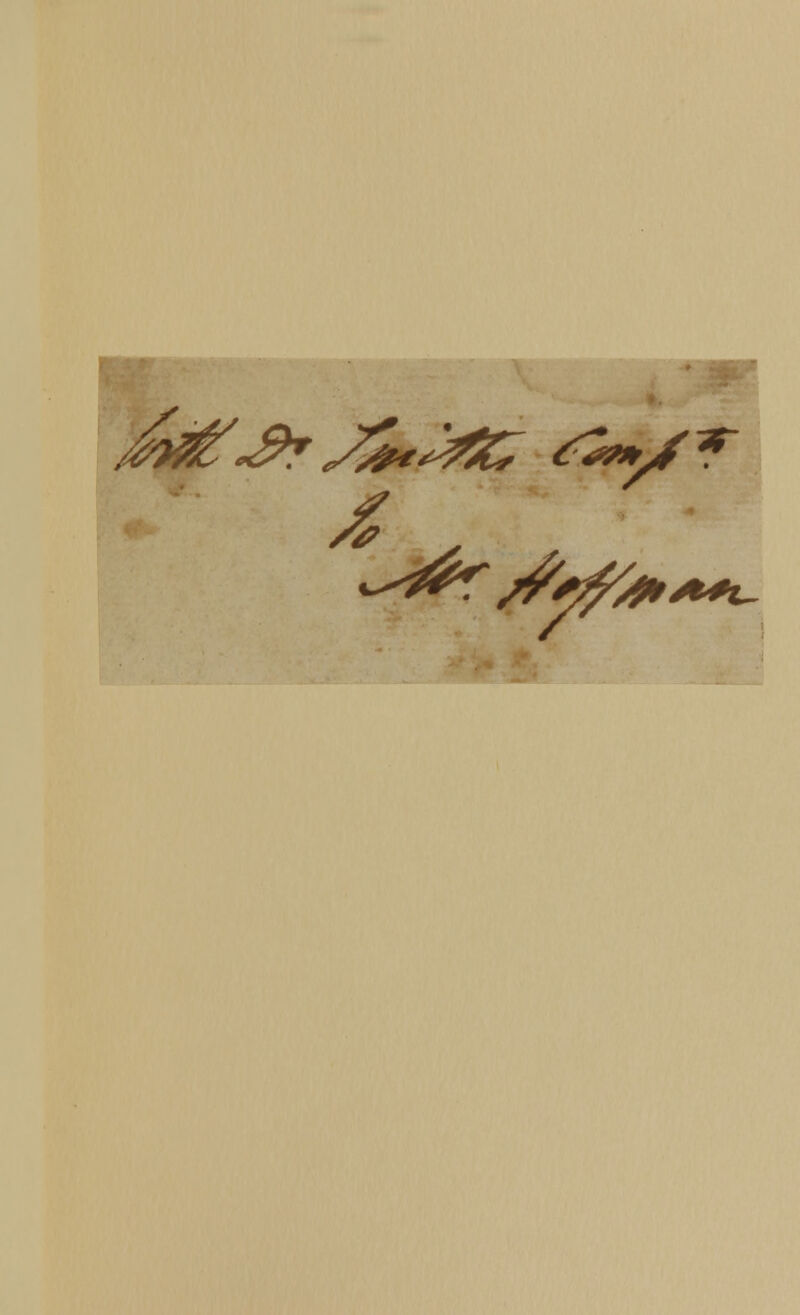 With Dr. Smiths Compts.
To
Mr. Hoffman